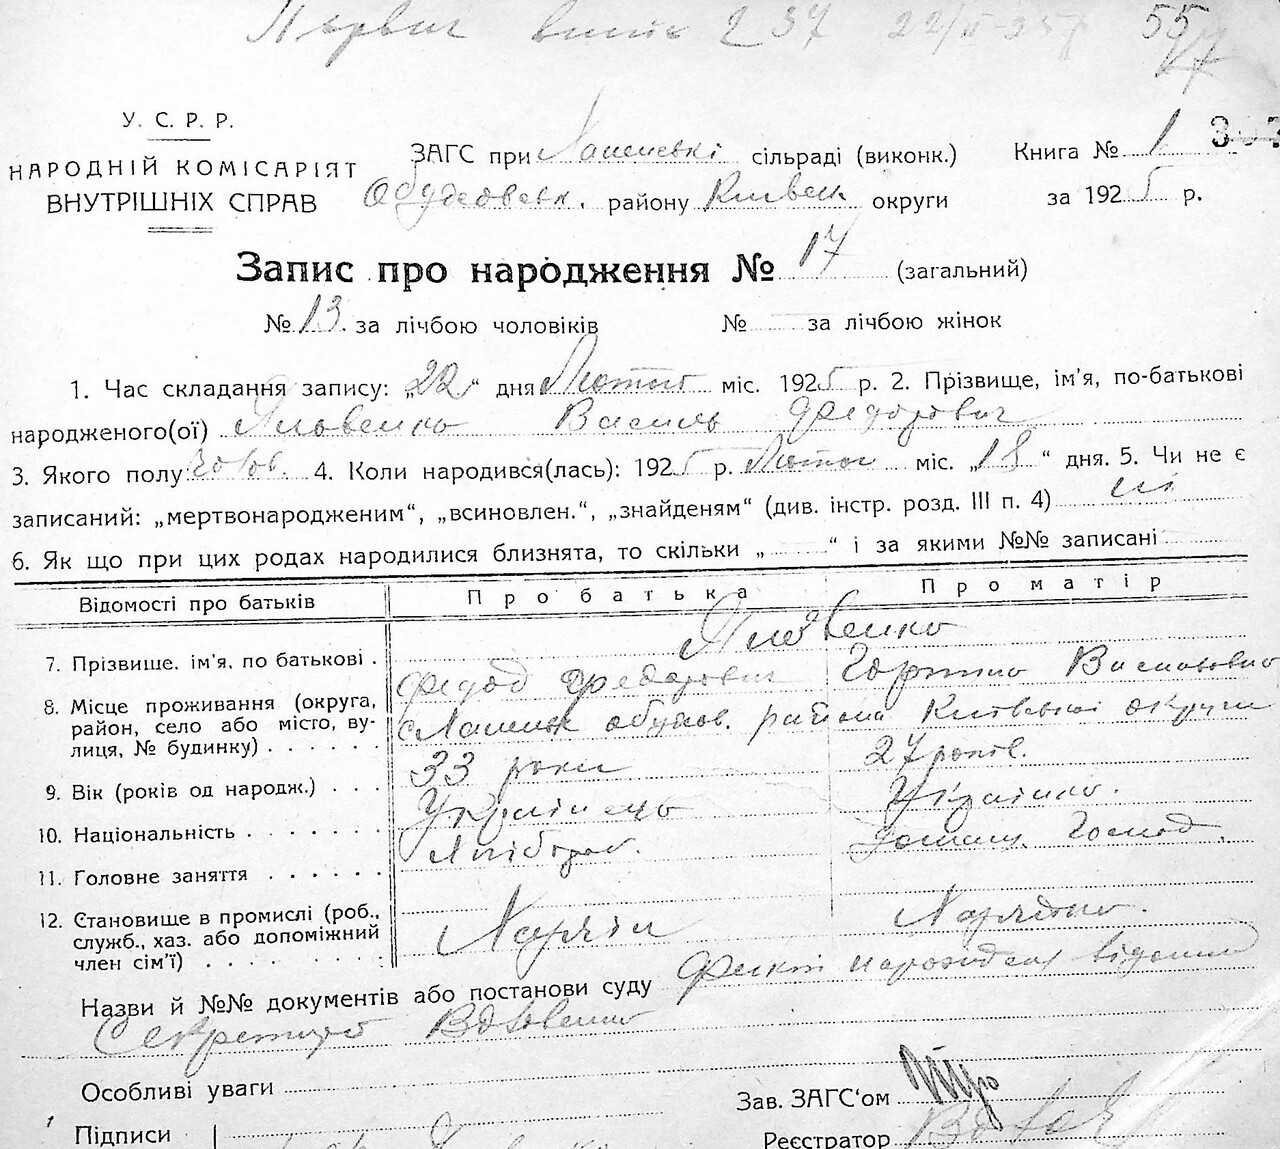 У. С. Р. Р.
НАРОДНІЙ КОМІСАРІЯТ
ВНУТРІШНІХ СПРАВ
ЗАГС при сільраді (виконк.) Книга № 1
району Київськ округи за 1925 р.
Запис про народження № 17 (загальний)
№ 13 за лічбою чоловіків № за лічбою жінок
1. Час складання запису: „22“ дня Лютого міс. 1925 р. 2. Прізвище, ім'я, по-батькові
народженого(ої) Василь Федорович
3. Якого полу чолов. 4. Коли народився(лась): 1925 р. Лютого міс. „18“ дня. 5. Чи не є
записаний: „мертвонародженим“, „всиновлен.“, „знайденям“ (див. інстр. розд. III п. 4) ні
6. Як що при цих родах народилися близнята, то скільки „ “ і за якими №№ записані
Відомості про батьків Про батька Про матір
7. Прізвище, ім'я, по батькові . Федор Федорович Горпина Василовна
8. Місце проживання (округа, район, село або місто, вулиця, № будинку) . . . . . . района Київської округи
9. Вік (років од народж.) . . . 33 роки 27 років.
10. Національність . . . . . . . Українець Українка.
11. Головне заняття . . . . . . Хлібороб. Домашн. Господ.
12. Становище в промислі (роб., служб., хаз. або допоміжний член сім'ї) . . . . . . . .
Назви й №№ документів або постанови суду Факт народження відомий
Секретарь Вдовенко
Особливі уваги
Зав. ЗАГС'ом
Підписи
Реєстратор